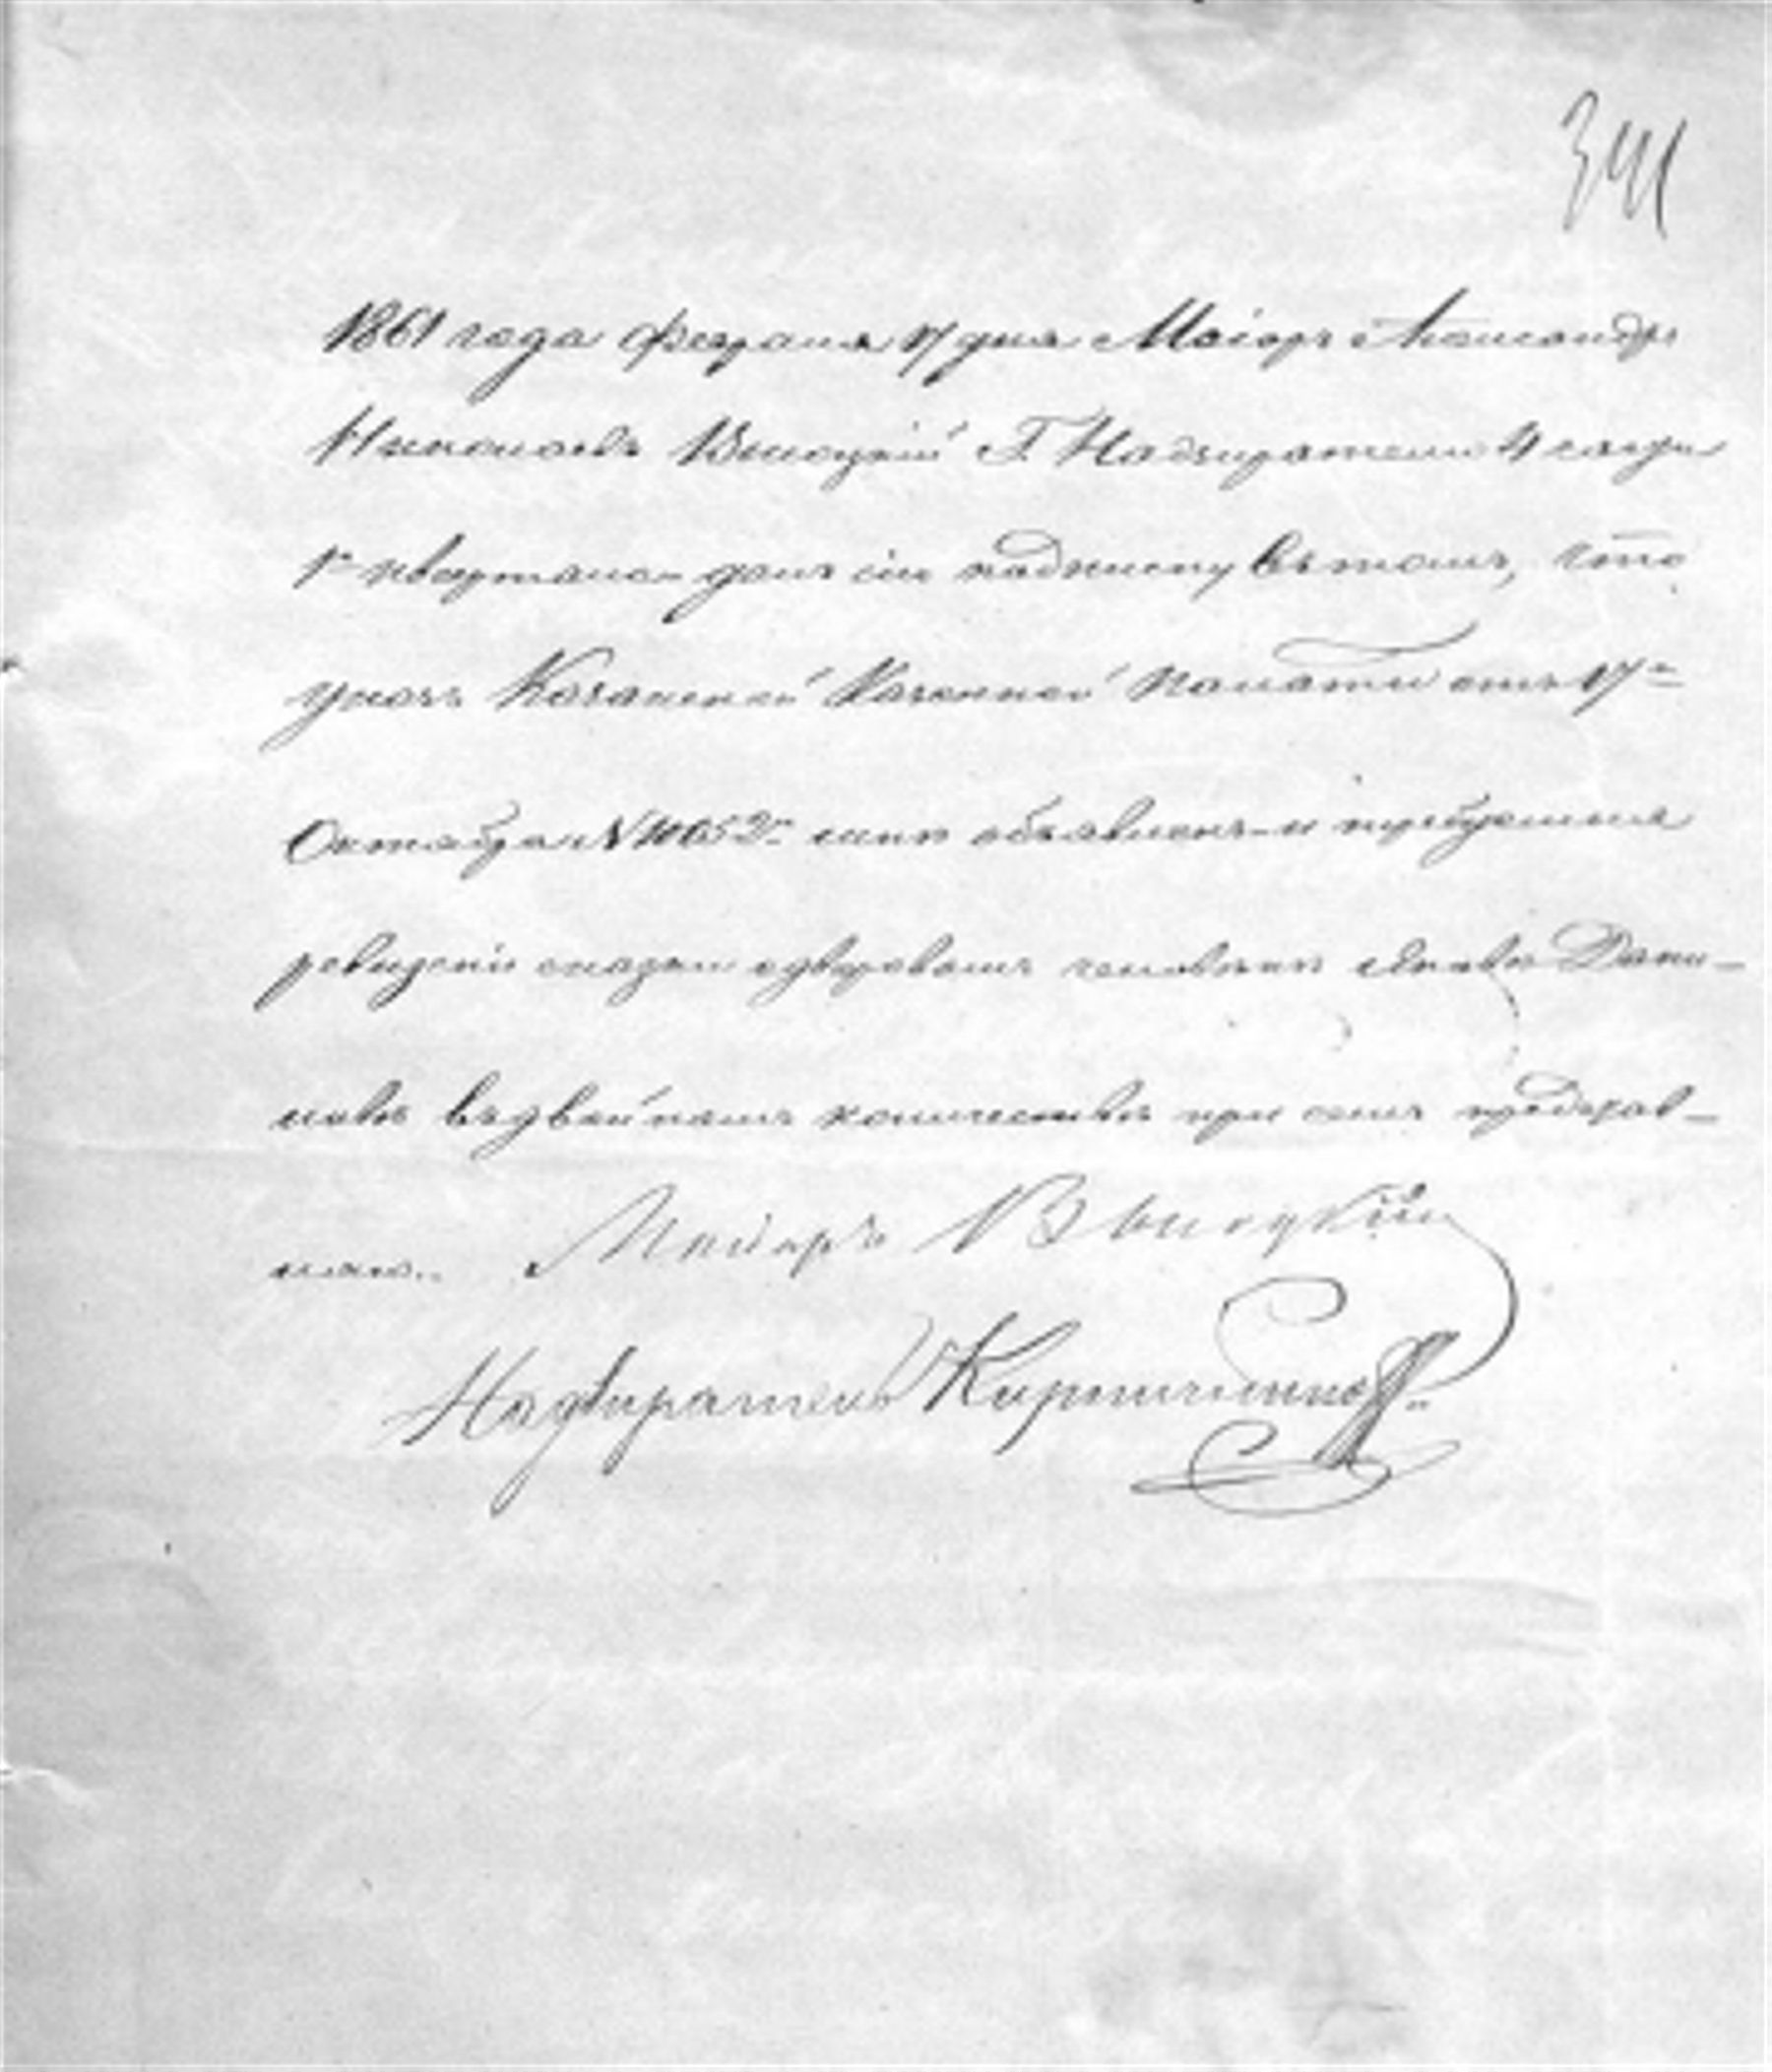 341
1861 года Февраля 17 дня Маіоръ Александръ
Николаевъ Высоцкій Г. Надзирателю 4 части
1го квартала далъ сію подписку въ томъ, что
указъ Казанской Казенной Палаты отъ 17го
Октября № 11052 мнѣ объявленъ и требуемыя
ревизскія сказки о дворовомъ человѣкѣ Дани-
ловѣ въ двойномъ количествѣ при семъ представ-
ляю.. Маіоръ Высоцкій
Надзиратель Кирпичниковъ